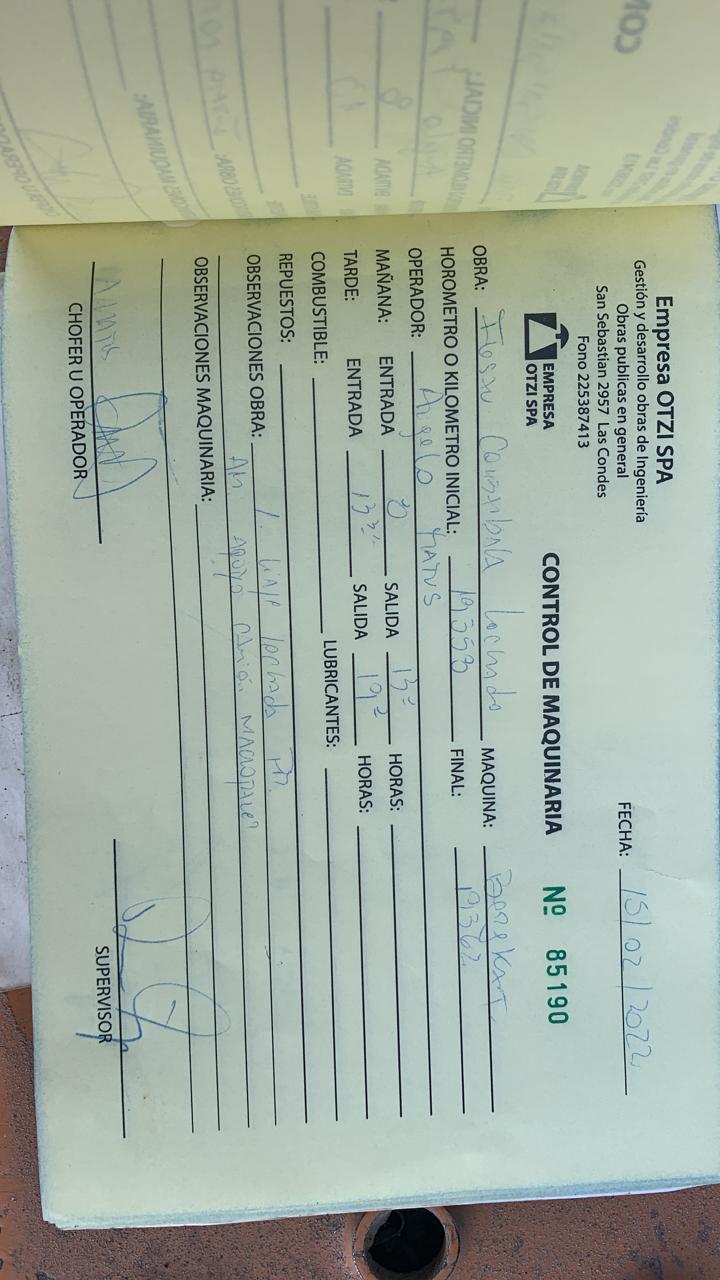 Empresa OTZI SPA
Gestión y desarrollo obras de Ingeniería
Obras publicas en general
San Sebastian 2957 Las Condes
Fono 225387413
EMPRESA
OTZI SPA
FECHA: 15/02/2022
CONTROL DE MAQUINARIA Nº 85190
OBRA: Lechada MAQUINA:
HOROMETRO O KILOMETRO INICIAL: 19358 FINAL: 19362
OPERADOR: Angelo MATUS
MAÑANA: ENTRADA SALIDA 13 HORAS:
TARDE: ENTRADA 13 SALIDA 19 HORAS:
COMBUSTIBLE: LUBRICANTES:
REPUESTOS:
OBSERVACIONES OBRA: 1. viaje lechada
AM. APOYO Camión
OBSERVACIONES MAQUINARIA:
CHOFER U OPERADOR
SUPERVISOR